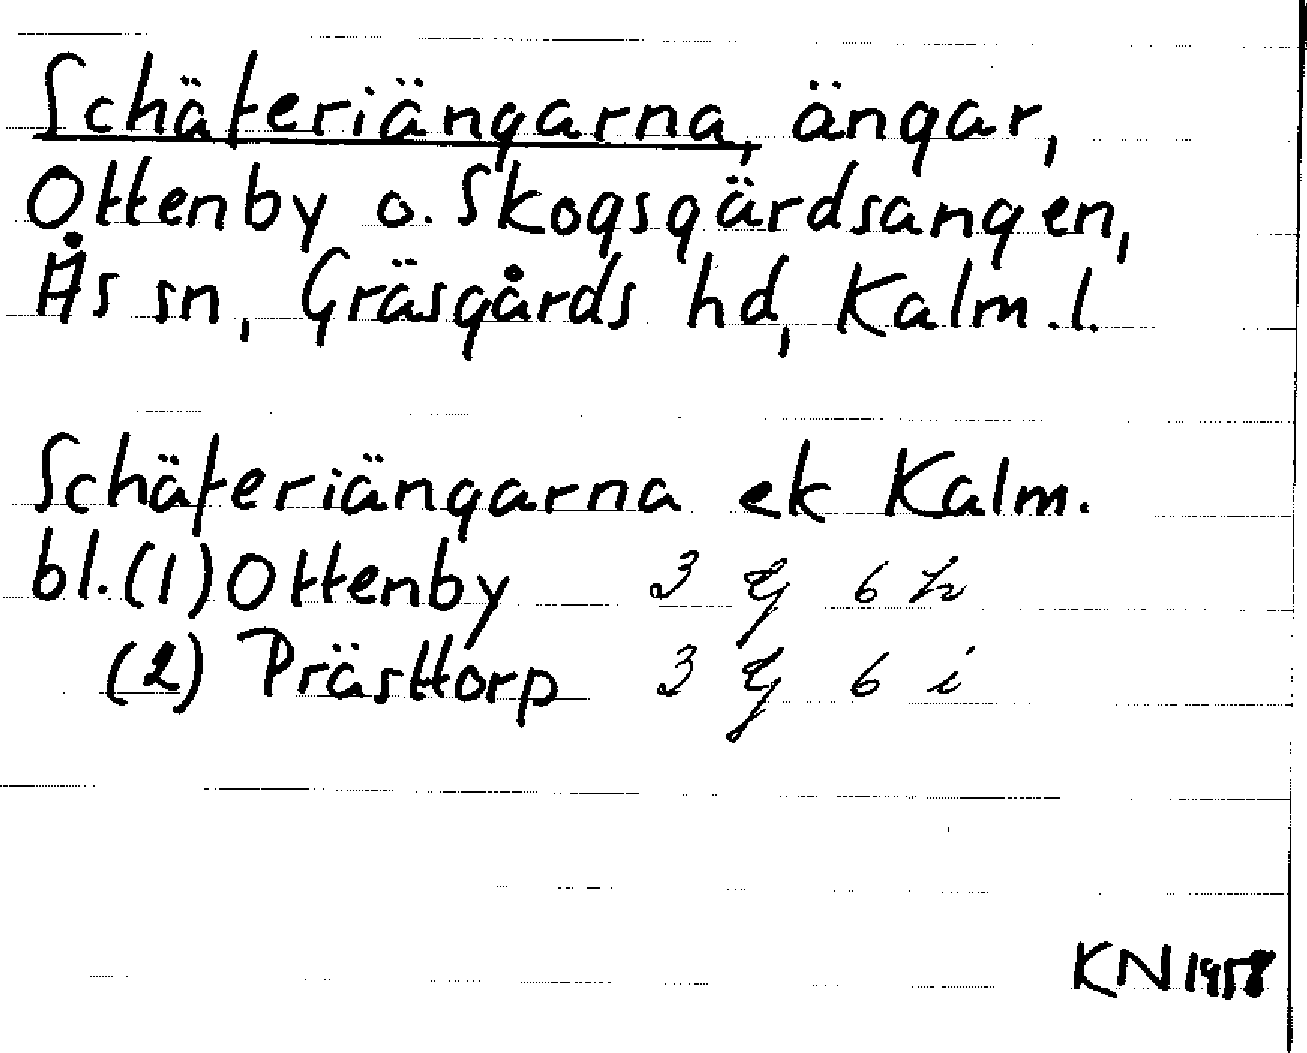 Schäferiängarna, ängar,
Ottenby o. Skogsgärdsangen,
Ås sn, Gräsgårds hd, Kalm.l.
Schäferiängarna ek Kalm.
bl.(1) Ottenby 3 G 6 h
(2) Prästtorp 3 G 6 i
KN 1958